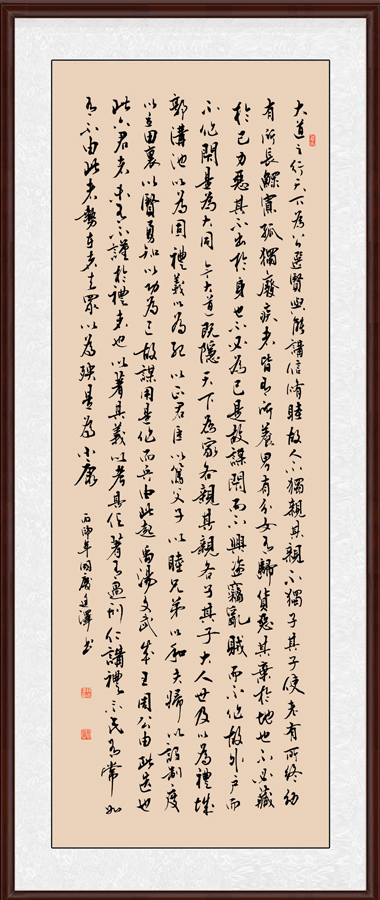 大道之行天下為公選賢與能講信脩睦故人不獨親其親不獨子其子使老有所終幼
有所長鰥寡孤獨廢疾者皆有所養男有分女有歸貨惡其棄於地也不必藏
於己力惡其不出於身也不必為己是故謀閉而不興盜竊亂賊而不作故外戶而
不作閉是為大同今大道既隱天下為家各親其親各子其子大人世及以為禮城
郭溝池以為固禮義以為紀以正君臣以篤父子以睦兄弟以和夫婦以設制度
以立田裏以賢勇知以功為己故謀用是作而兵由此起禹湯文武成王周公由此選也
此六君者未有不謹於禮者也以著其義以考其信著有過刑仁講禮示民有常如
有不由此者勢在者去眾以為殃是為小康
丙申年國慶澤書